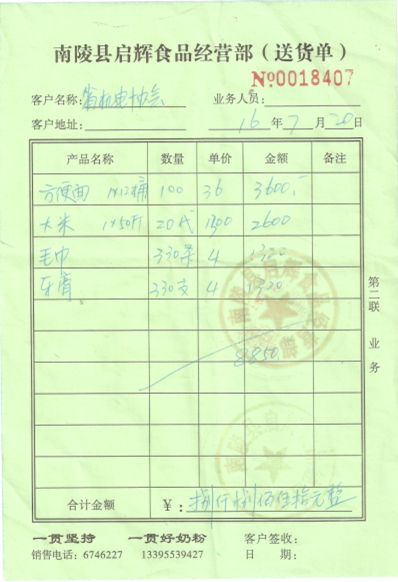 南陵县启辉食品经营部（送货单）
№0018407
客户名称：省机电协会 业务人员：
客户地址： 16年7月20日
产品名称 数量 单价 金额 备注
方便面 1×12桶 100 36 3600.-
大米 1×50斤 20代 2600
毛巾 330条 4 1320
牙膏 330支 4 1320
8850
第二联 业务
合计金额 ¥：捌仟捌佰伍拾元整
一贯坚持 一贯好奶粉 客户签收：
销售电话：6746227 13395539427 日 期：